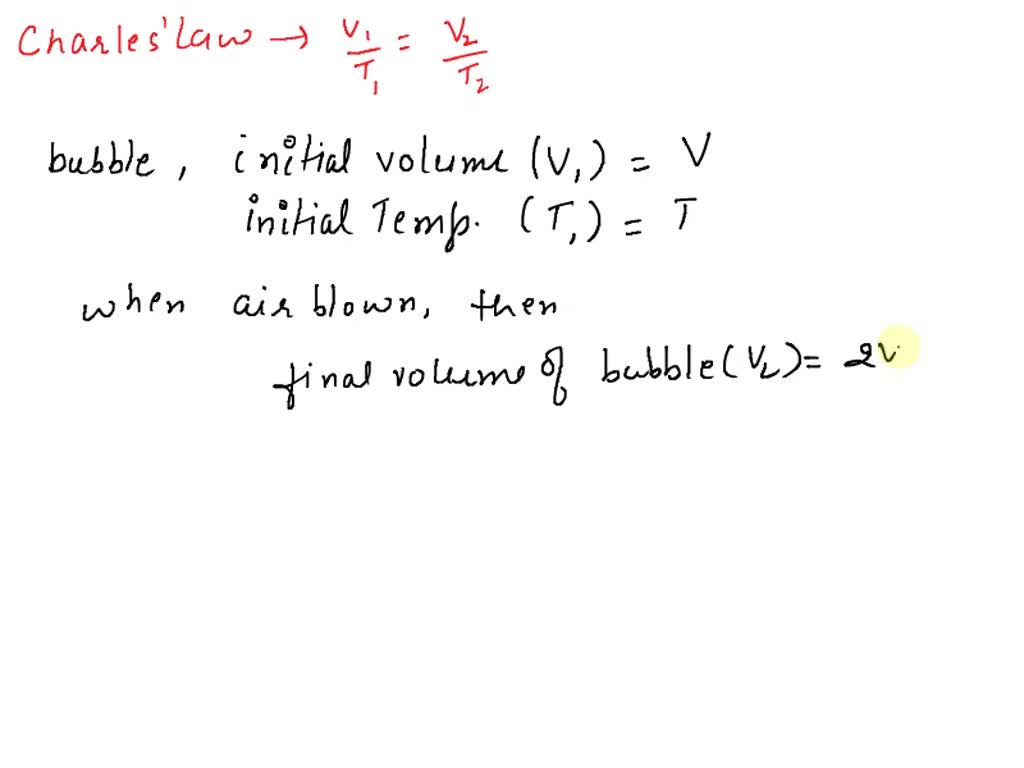 Charles' Law → V₁/T₁ = V₂/T₂
bubble, initial volume (V₁) = V
initial Temp. (T₁) = T
when air blown, then
final volume of bubble (V₂) = 2V